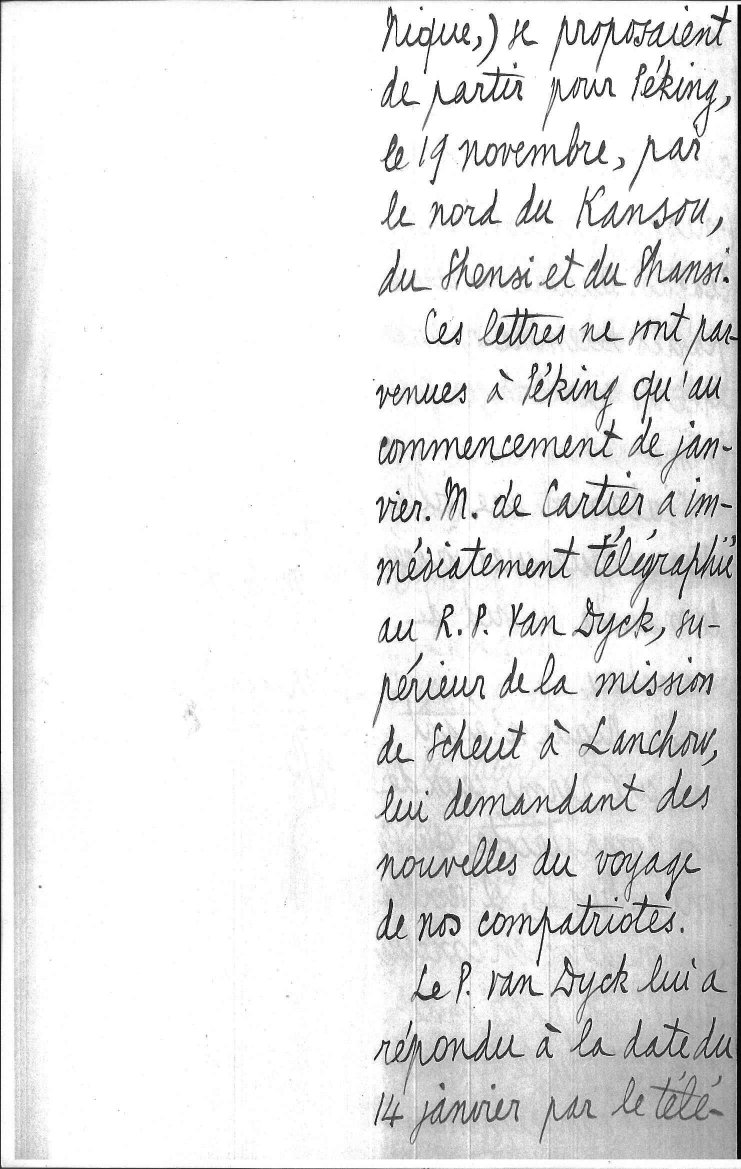 nique,) se proposaient
de partir pour Péking,
le 19 novembre, par
le nord du Kansou,
du Shensi et du Shansi.
Ces lettres ne sont par-
venues à Péking qu'au
commencement de jan-
vier. M. de Cartier a im-
médiatement télégraphié
au R. P. Van Dyck, su-
périeur de la mission
de Scheut à Lanchow,
lui demandant des
nouvelles du voyage
de nos compatriotes.
Le P. van Dyck lui a
répondu à la date du
14 janvier par le télé-